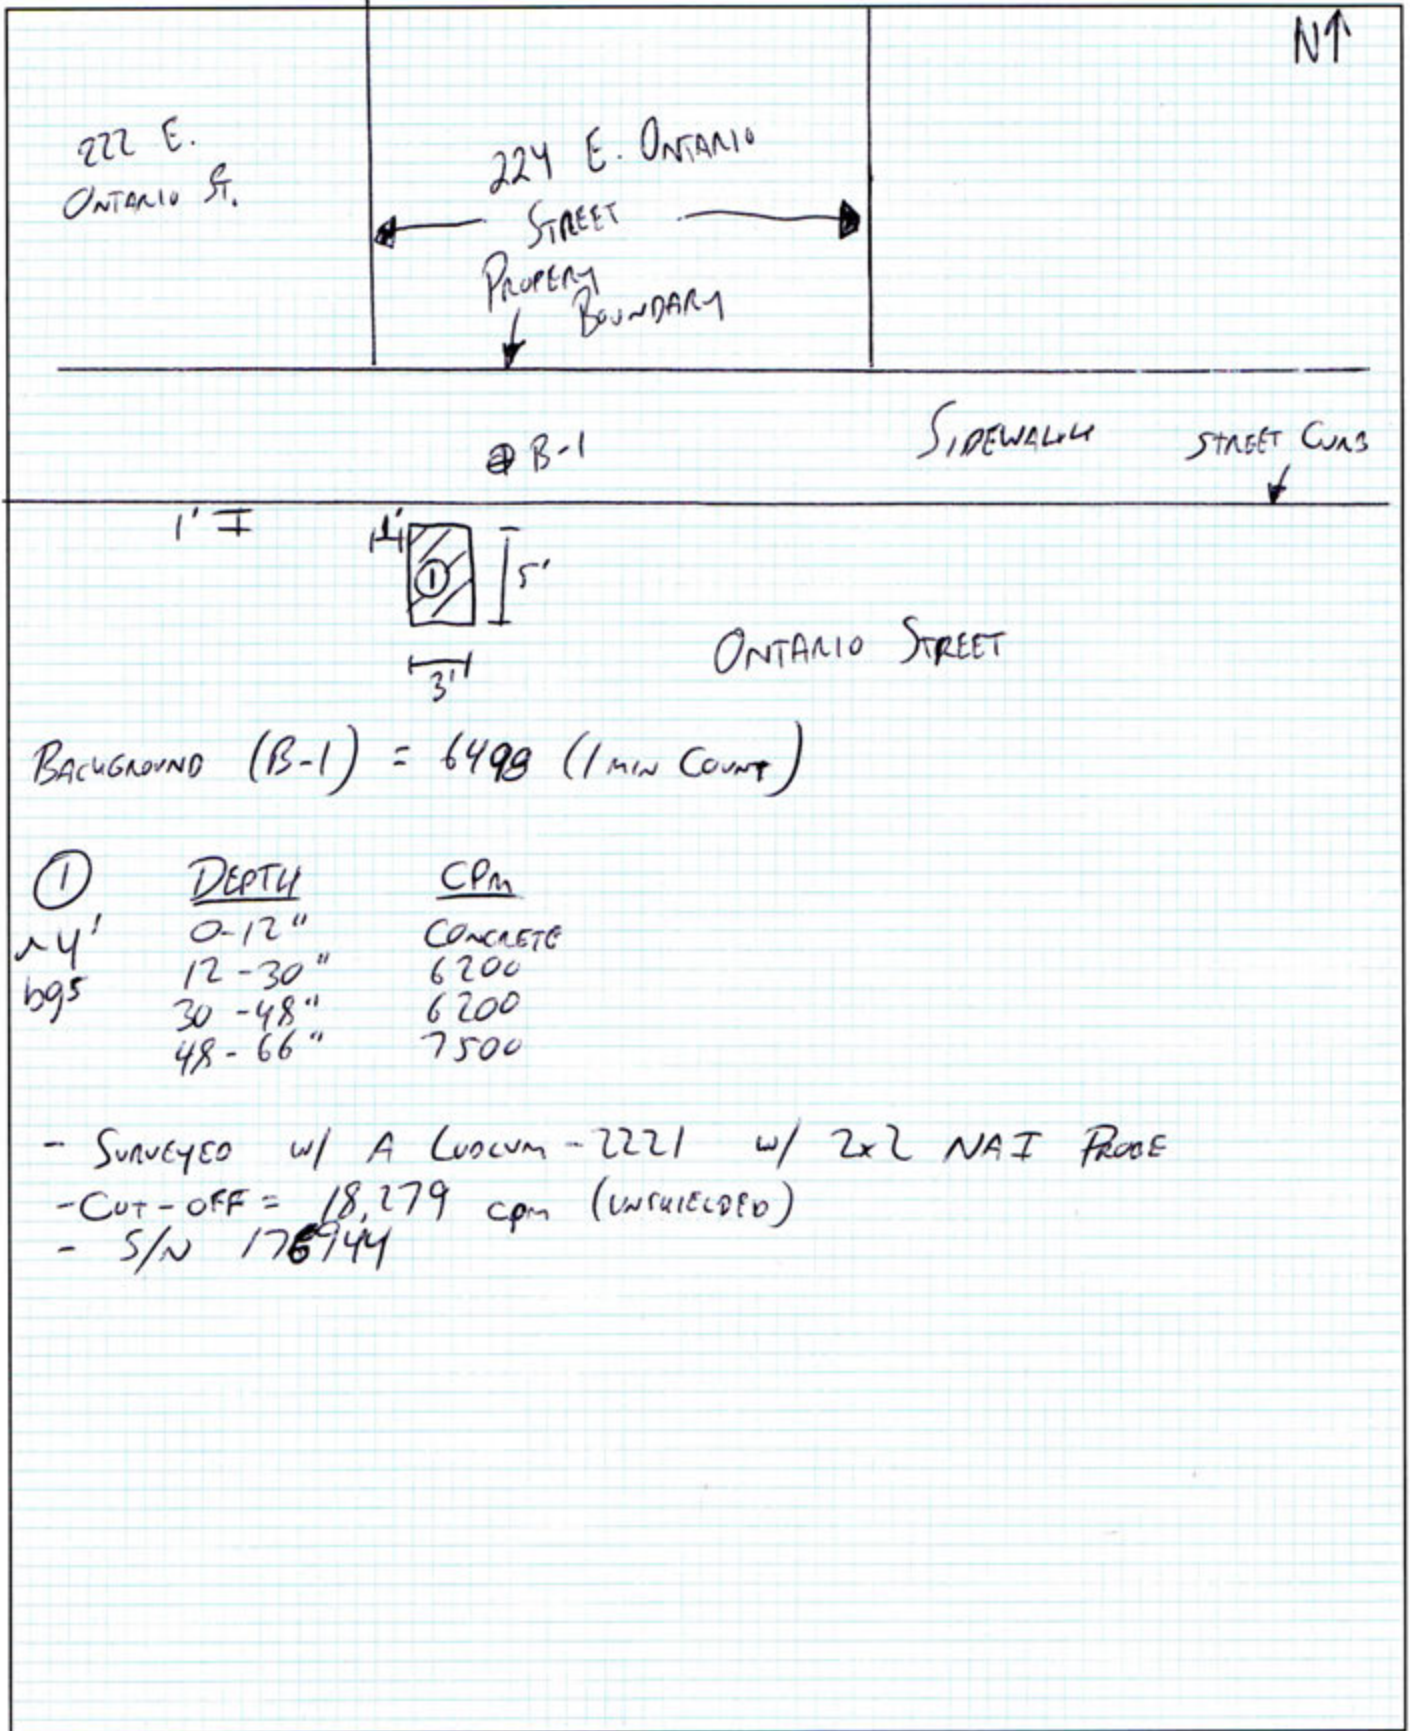 N↑
222 E.
ONTARIO ST.
224 E. ONTARIO
STREET
PROPERY
BOUNDARY
B-1
SIDEWALK
STREET CURB
1'
1'
①
5'
3'
ONTARIO STREET
BACKGROUND (B-1) = 6498 (1 MIN COUNT)
① DEPTH CPM
~4' 0-12" CONCRETE
bgs 12-30" 6200
30-48" 6200
48-66" 7500
- SURVEYED w/ A LUDLUM-2221 w/ 2x2 NAI PROBE
- CUT-OFF = 18,279 cpm (UNSHIELDED)
- S/N 176944